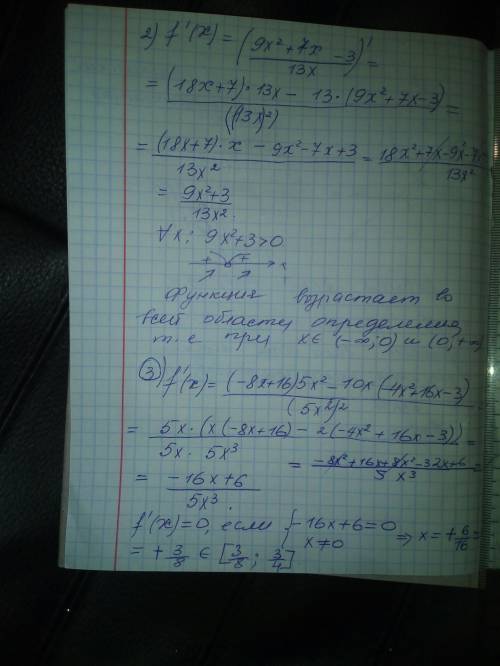 2) f'(x) = (9x²+7x-3 / 13x)' =
= (18x+7)·13x - 13·(9x²+7x-3) / ((13x)²) =
= (18x+7)·x - 9x²-7x+3 / 13x² = 18x²+7x-9x²-7x / 13x²
= 9x²+3 / 13x².
∀x: 9x²+3>0
+ + x
Функция возрастает во
всей области определения,
т.е при x∈ (-∞;0) и (0;+∞
3) f'(x) = (-8x+16)5x² - 10x(-4x²+16x-3) / (5x²)²
= 5x·(x(-8x+16) - 2(-4x²+16x-3)) / 5x·5x³ =
= -8x²+16x+8x²-32x+6 / 5x³ =
= -16x+6 / 5x³.
f'(x)=0, если { -16x+6=0 x≠0 ⇒ x=+6/16=
= +3/8 ∈ [3/8; 3/4]